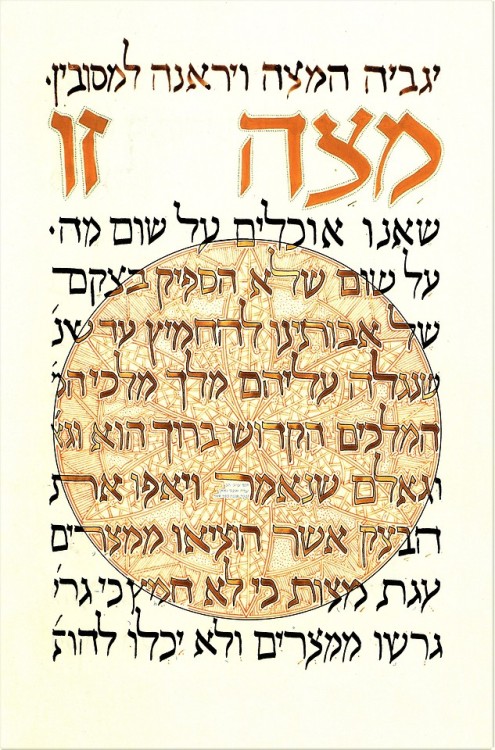 יגביה המצה ויראנה למסובין.
מצה זו
שאנו אוכלים על שום מה.
על שום שלא הספיק בצקם
של אבותינו להחמיץ עד שנ
שנגלה עליהם מלך מלכי המ
המלכים הקדוש ברוך הוא וגא
וגאלם שנאמר ויאפו את
הבצק אשר הוציאו ממצרים
עגת מצות כי לא חמץ כי גר
גרשו ממצרים ולא יכלו להת